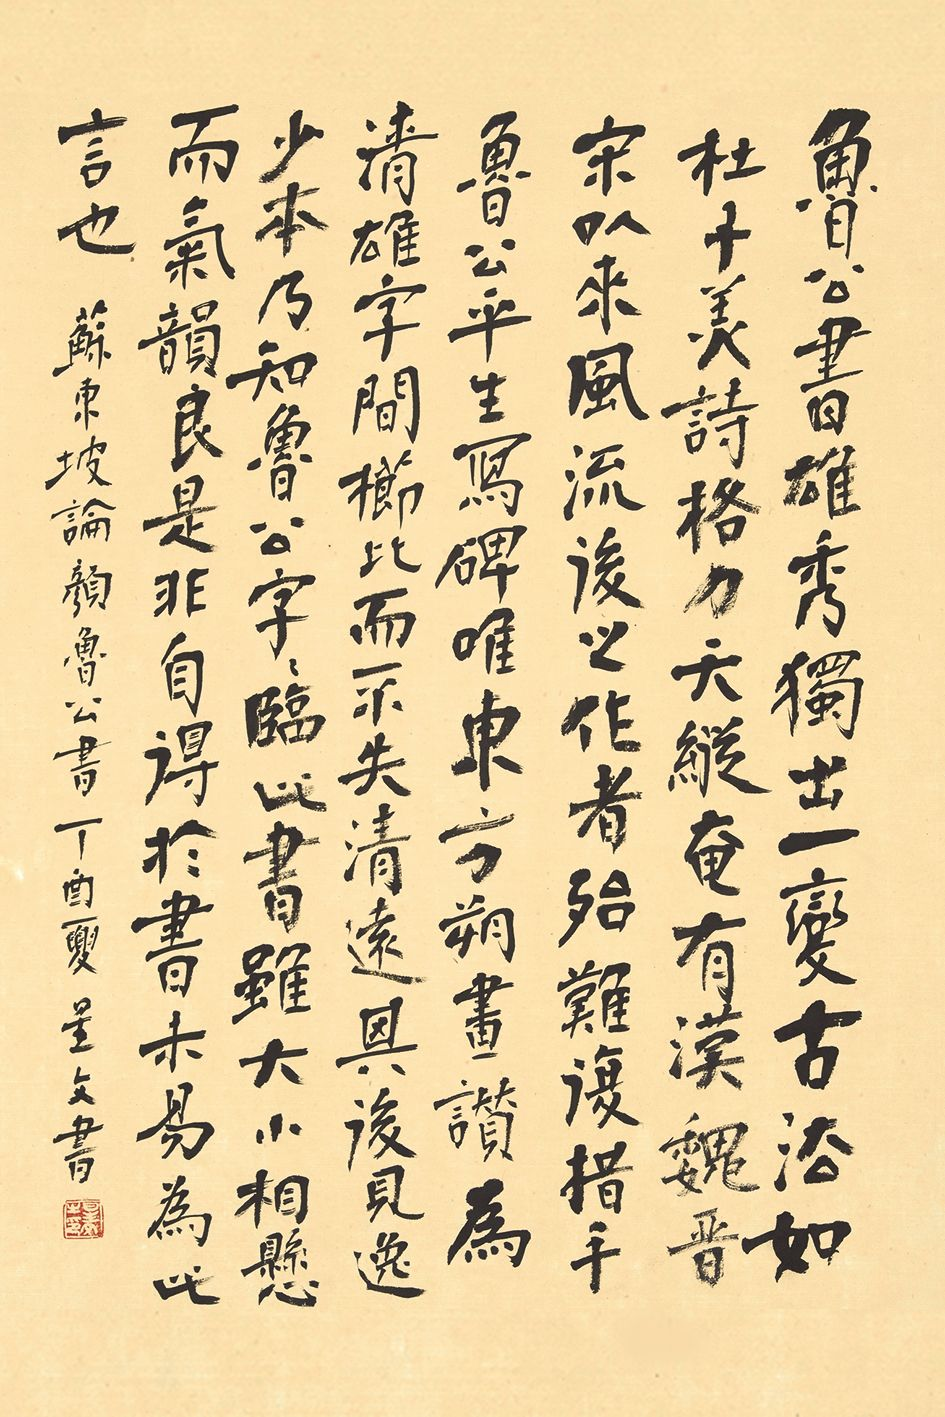 魯公書雄秀獨出一變古法如
杜子美詩格力天縱奄有漢魏晉
宋以來風流後之作者殆難復措手
魯公平生寫碑唯東方朔畫讚為
清雄字間櫛比而不失清遠其後見逸
少本乃知魯公字〻臨此書雖大小相懸
而氣韻良是非自得於書未易為此
言也 蘇東坡論顏魯公書 丁酉夏 星文書